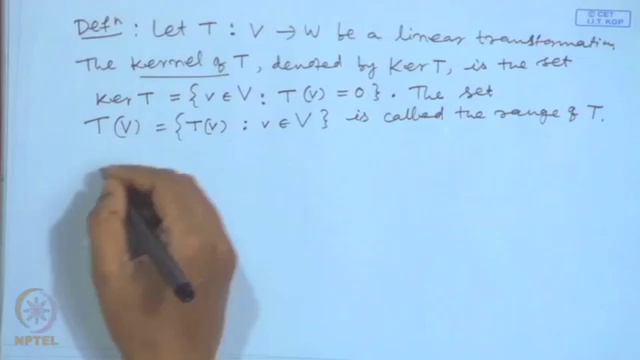 © CET
I.I.T. KGP
Defⁿ : Let T : V → W be a linear transformation.
The Kernel of T, denoted by Ker T, is the set
Ker T = {v ∈ V : T(v) = 0}. The set
T(V) = {T(v) : v ∈ V} is called the range of T.
NPTEL